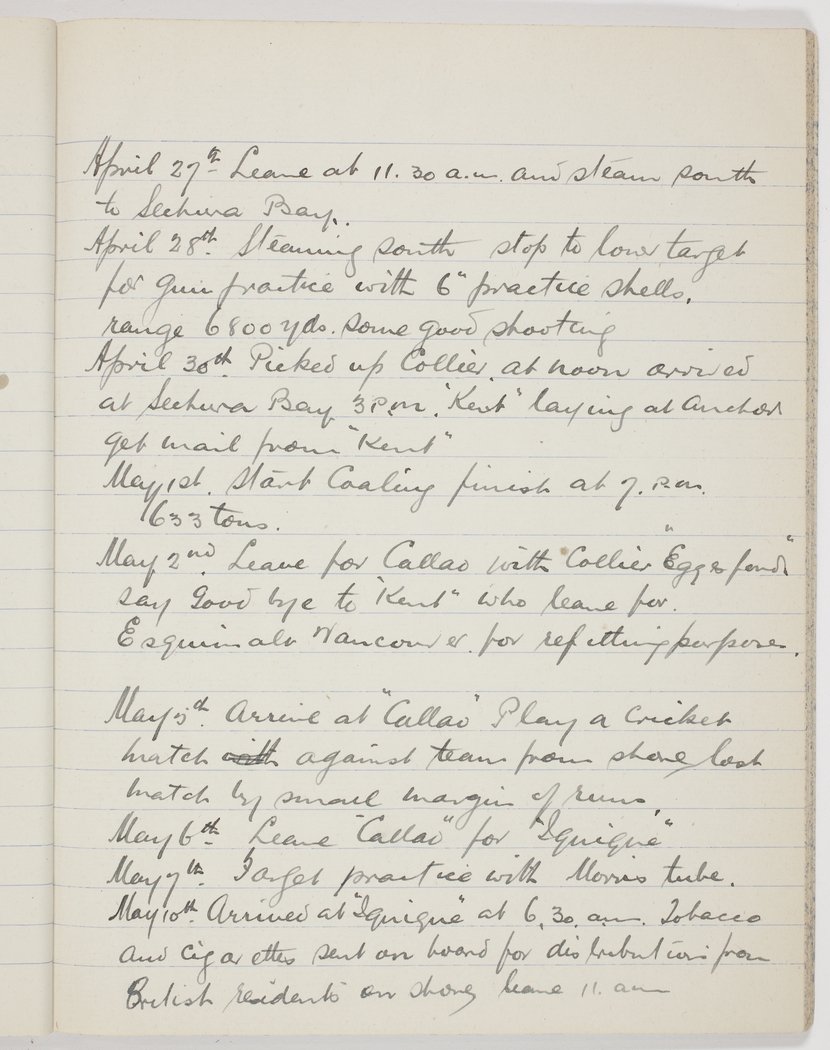 April 27th Leave at 11.30 a.m. and steam south
to Sechura Bay.
April 28th. Steaming south stop to lower target
for Gun practice with 6" practice shells,
range 6800 yds. some good shooting
April 30th. Picked up Collier. at noon arrived
at Sechura Bay 3 P.m. "Kent" laying at Anchor
get mail from "Kent"
May 1st. start Coaling finish at 7. P.m.
633 tons.
May 2nd. Leave for Callao with Collier "Eggesford"
say Good bye to "Kent" who leave for.
Esquimalt Vancouver. for refitting purposes.
May 5th. Arrive at "Callao" Play a Cricket
match with against team from shore, lost
match by small margin of runs,
May 6th. Leave "Callao" for "Iquique"
May 7th. Target practice with Morris tube.
May 10th. Arrived at "Iquique" at 6.30. a.m. Tobacco
and cigarettes sent on board for distribution from
British residents on shore, leave 11. am